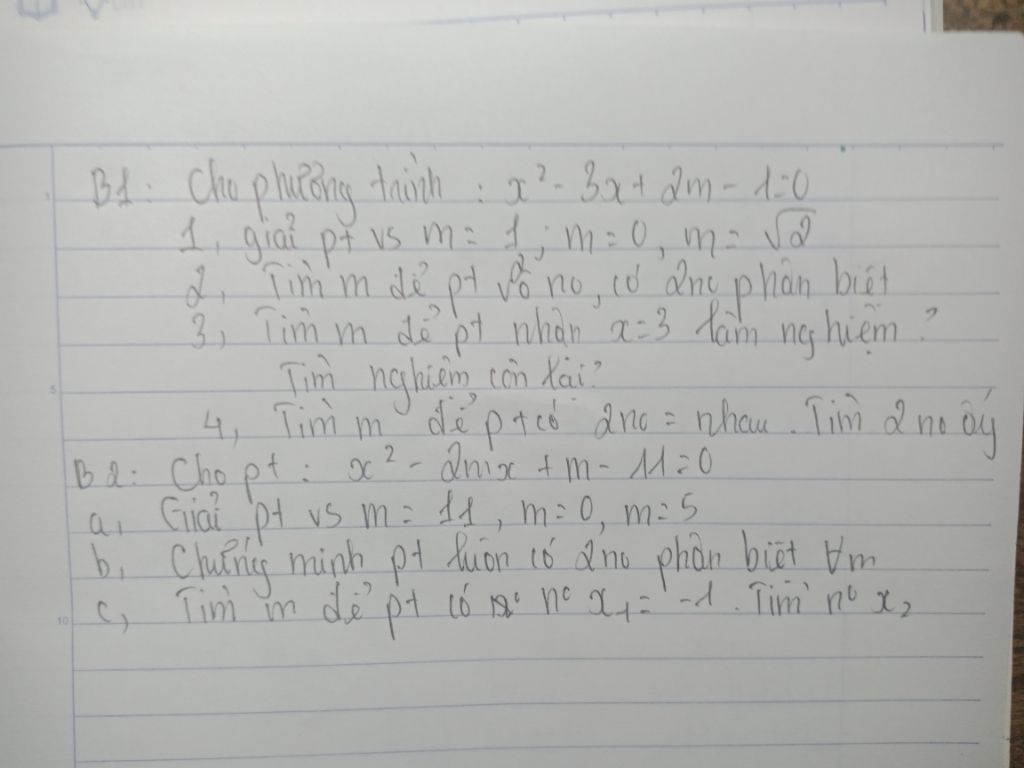 B1: Cho phương trình : x² - 3x + 2m - 1=0
1, giải pt vs m = 1 ; m=0, m= √2
2, Tìm m để pt vô no, có 2no phân biệt
3, Tìm m để pt nhận x=3 làm nghiệm?
Tìm nghiệm còn lại?
4, Tìm m để pt có 2no = nhau. Tìm 2 no ấy
B2: Cho pt : x² - 2mx + m - 11=0
a, Giải pt vs m= 11, m=0, m=5
b, Chứng minh pt luôn có 2no phân biệt ∀m
c, Tìm m để pt có no x₁= -1. Tìm no x₂
5
10